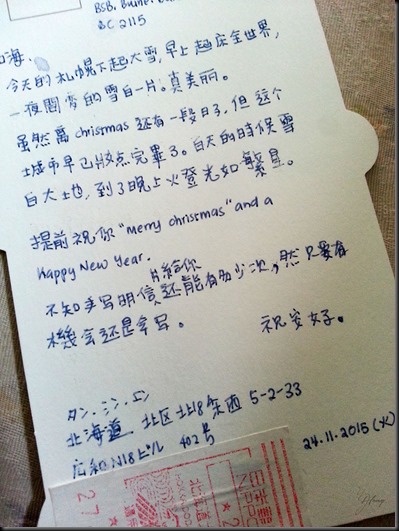 BSB, Brunei
BC 2115
海,
今天的札幌下起大雪,早上起床全世界,
一夜間旁的雪白一片。真美丽。
虽然离 christmas 还有一段日子,但这个
城市早已妝点完畢了。白天的時候雪
白大地,到了晚上灯光如繁星。
提前祝你"merry christmas" and a
Happy New Year.
不知手写明信片給你还能有多少次,然只要有
機会还是会写。 祝安好。
タン・シン・エン
北海道 北区北18条西 5-2-33
広和N18ビル 402号
24.11.2015 (火)
27